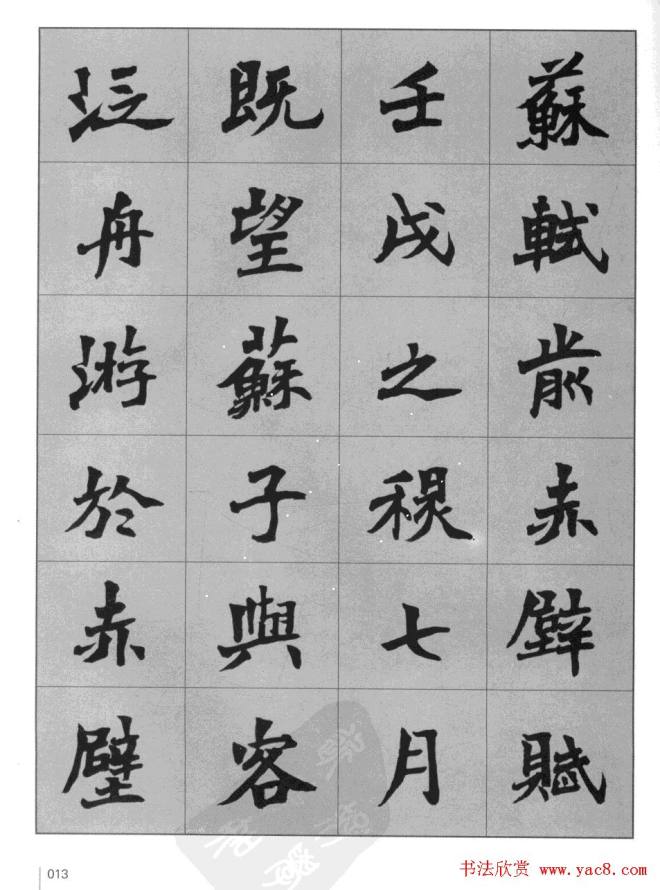 蘇軾前赤壁賦
壬戌之秋七月
既望蘇子與客
泛舟游於赤壁
013
书法欣赏 www.yac8.com